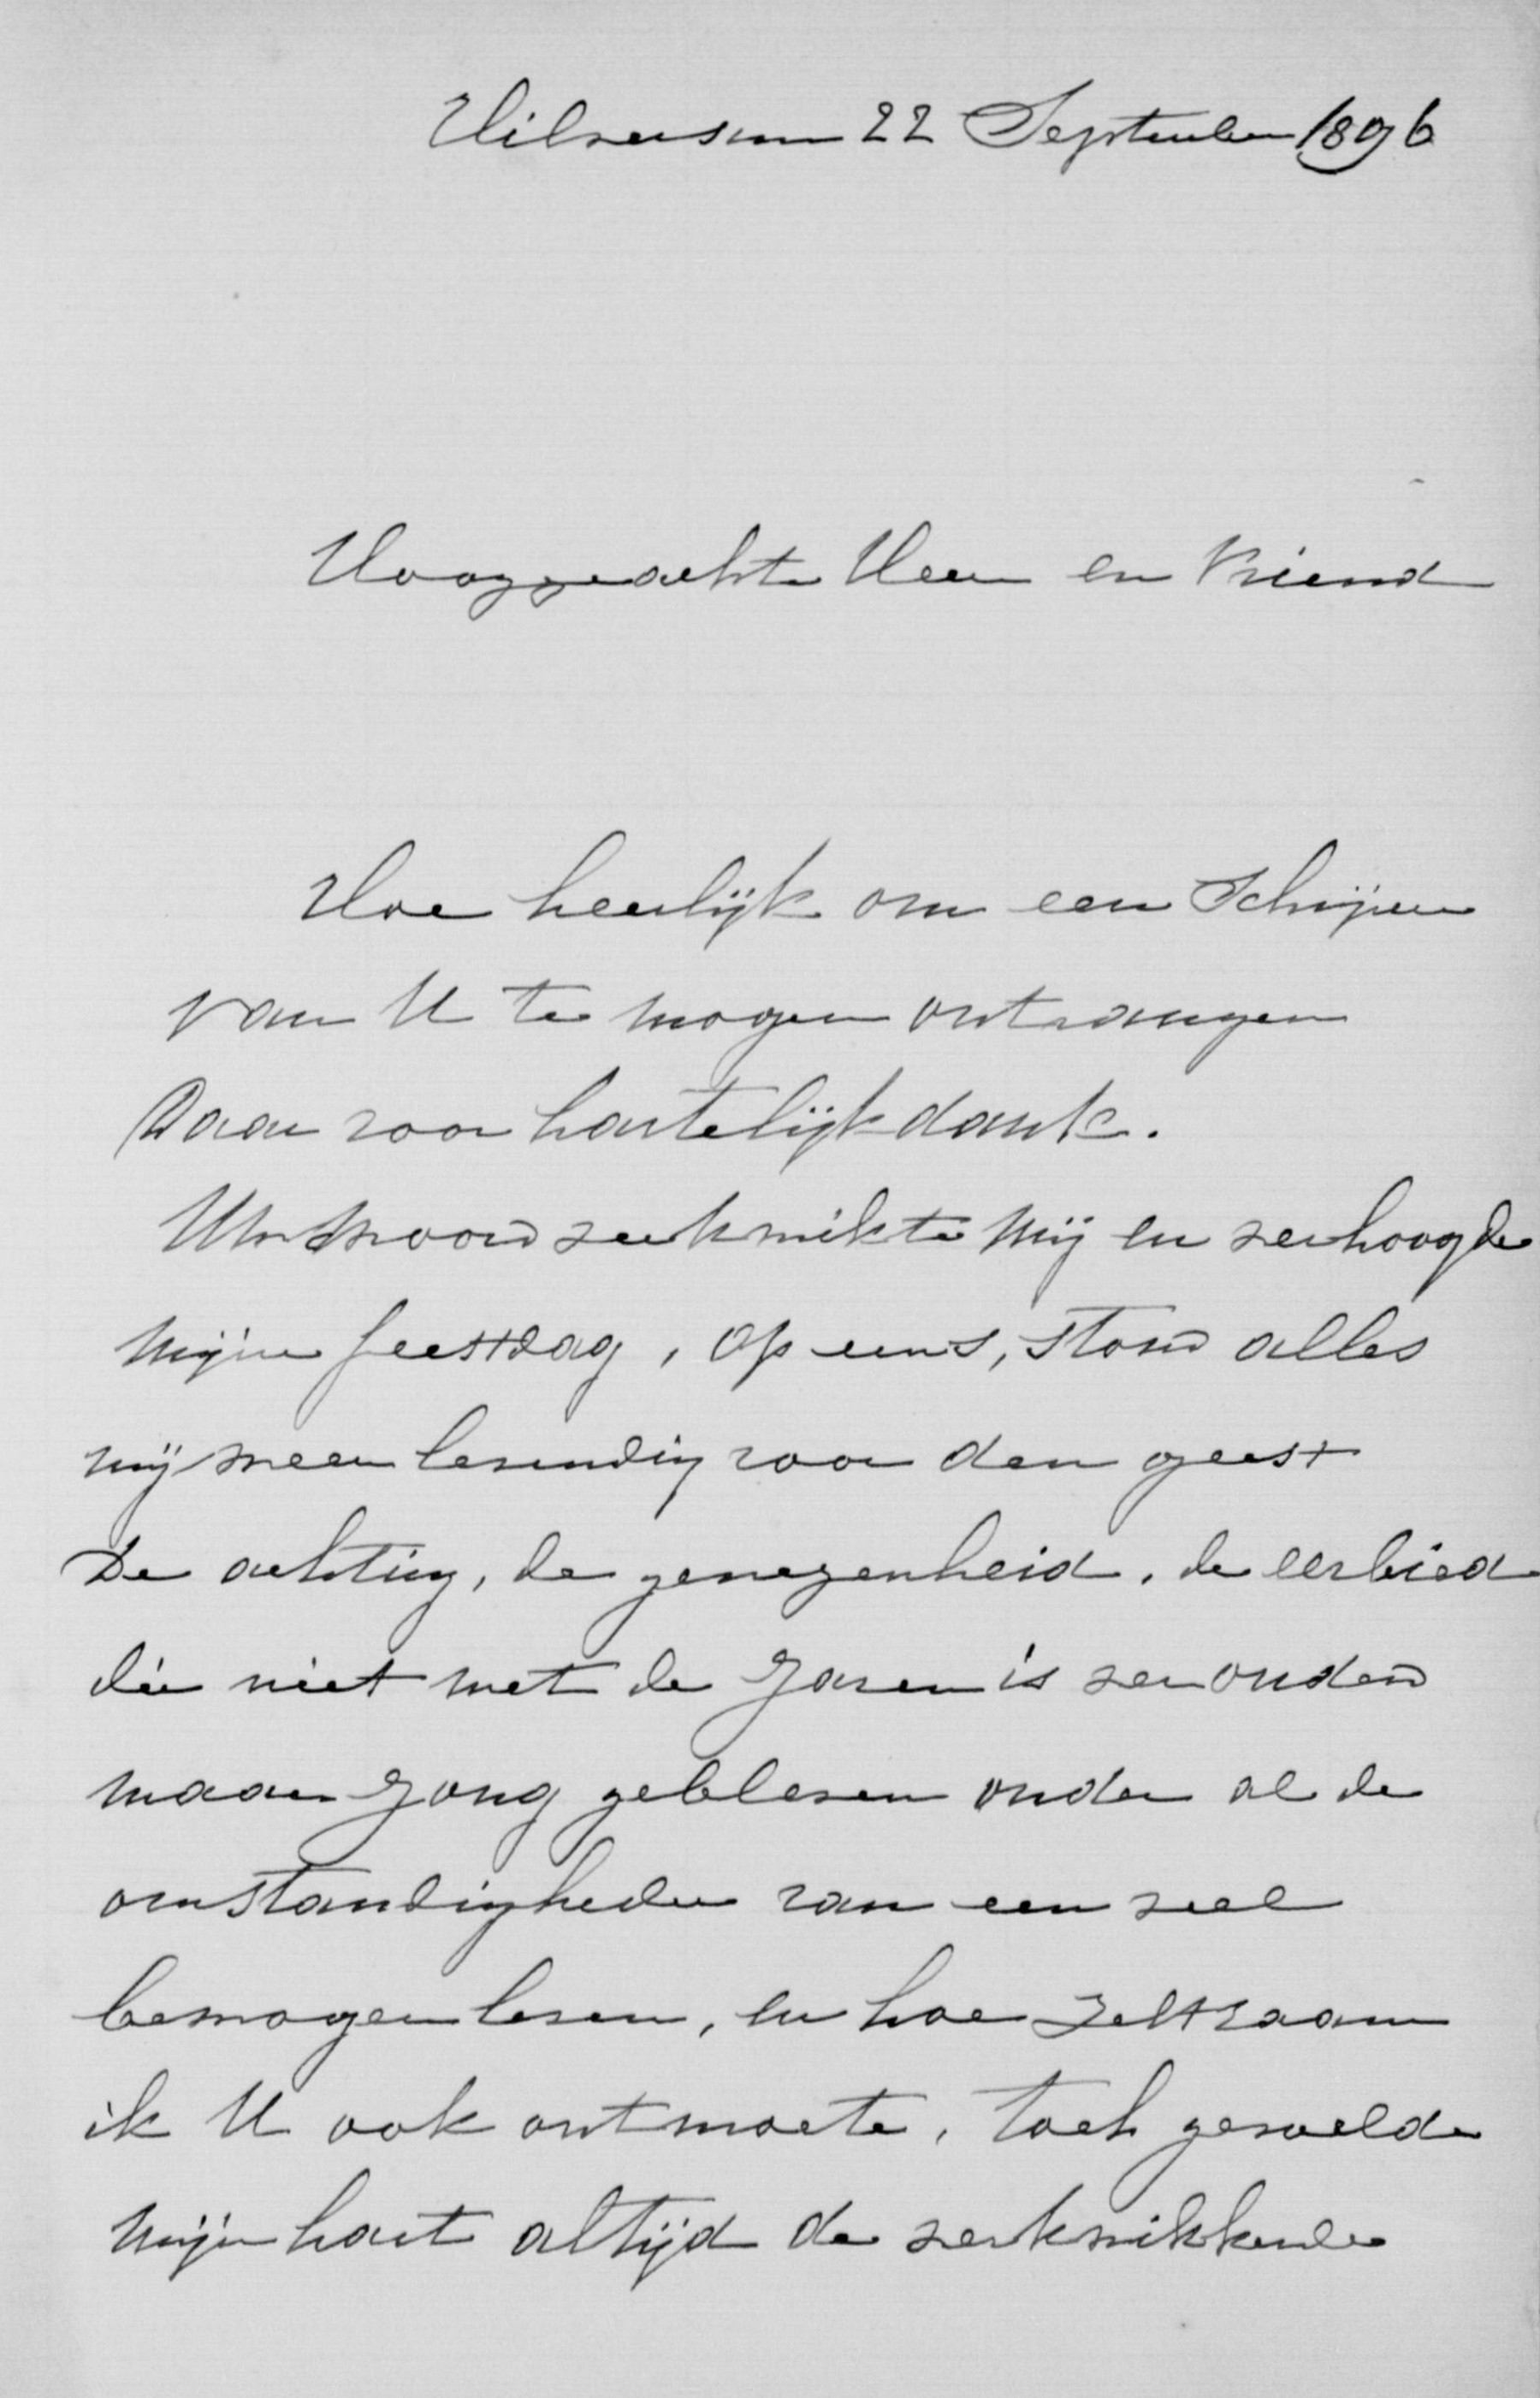 Hilversum 22 September 1896
Hooggeachte Heer en Vriend
Hoe heerlijk om een Schrijven
van U te mogen ontvangen
Daar voor hartelijk dank.
Uw woord verkwikte mij en verhoogde
mijne feestdag, op eens, stond alles
mij weer levendig voor den geest
De achting, de genegenheid, de eerbied
die niet met de Jaren is verouderd
maar Jong gebleven onder al de
omstandigheden van een veel
bewogen leven, en hoe zeltzaam
ik U ook ontmoete, toch gevoelde
mijn hart altijd de verkwikkende